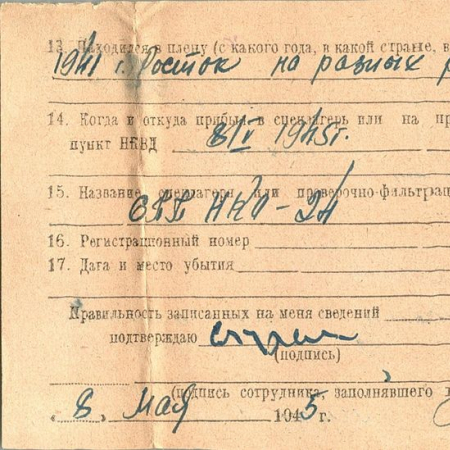 13. Находился в плену (с какого года, в какой стране, в
1941 г. Росток на разных р
14. Когда и откуда прибыл в спецлагерь или на пр
пункт НКВД 8/V 1945г.
15. Название спецлагеря или проверочно-фильтрац
СПП НКО-24
16. Регистрационный номер
17. Дата и место убытия
Правильность записанных на меня сведений
подтверждаю
(подпись)
(подпись сотрудника, заполнявшего
„8„ мая 1945 г.